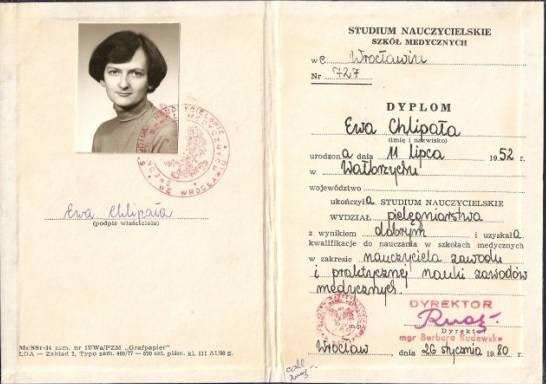 Ewa Chlipała
(podpis właściciela)
STUDIUM NAUCZYCIELSKIE
SZKÓŁ MEDYCZNYCH
we Wrocławiu
Nr 727
DYPLOM
Ewa Chlipała
(imię i nazwisko)
urodzona dnia 11 lipca 1952 r.
w Wałbrzychu
województwo
ukończyła STUDIUM NAUCZYCIELSKIE
WYDZIAŁ pielęgniarstwa
z wynikiem dobrym i uzyskała
kwalifikacje do nauczania w szkołach medycznych
w zakresie nauczyciela zawodu
i praktycznej nauki zawodów
medycznych.
DYREKTOR
Dyrektor
mgr Barbara Rudawska
Wrocław, dnia 26 stycznia 1980 r.